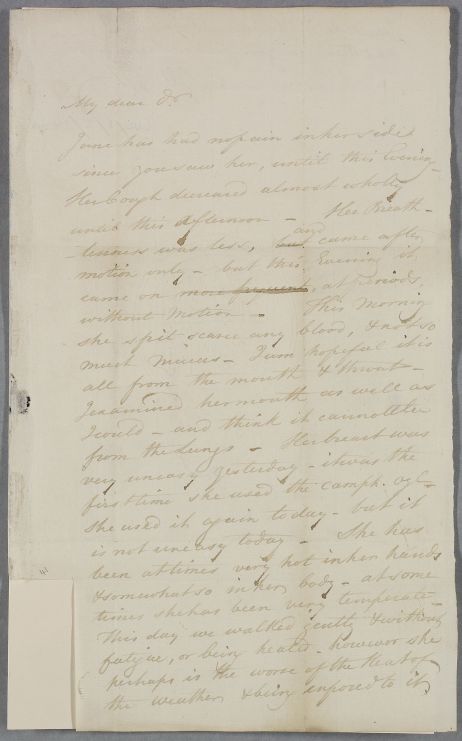 My dear Dr
Jane has had no pain in her side
since you saw her, until this Evening
Her Cough decreased almost wholly
until this afternoon - Her Breath-
-lessness was less, but and came after
motion only - but this Evening it
came on more frequent, at periods,
without motion - This morning
she spit scarce any blood, & not so
much mucus - I am hopeful it is
all from the mouth & throat -
I examined her mouth as well as
I could - and think it cannot be
from the Lungs - Her breast was
very uneasy yesterday - it was the
first time she used the camph. oyl -
she used it again today - but it
is not uneasy today - She has
been at times very hot in her hands
& somewhat so in her body - at some
times she has been very temperate -
This day we walked gently & without
fatigue, or being heated - however she
perhaps is the worse of the heat of
the weather & being exposed to it